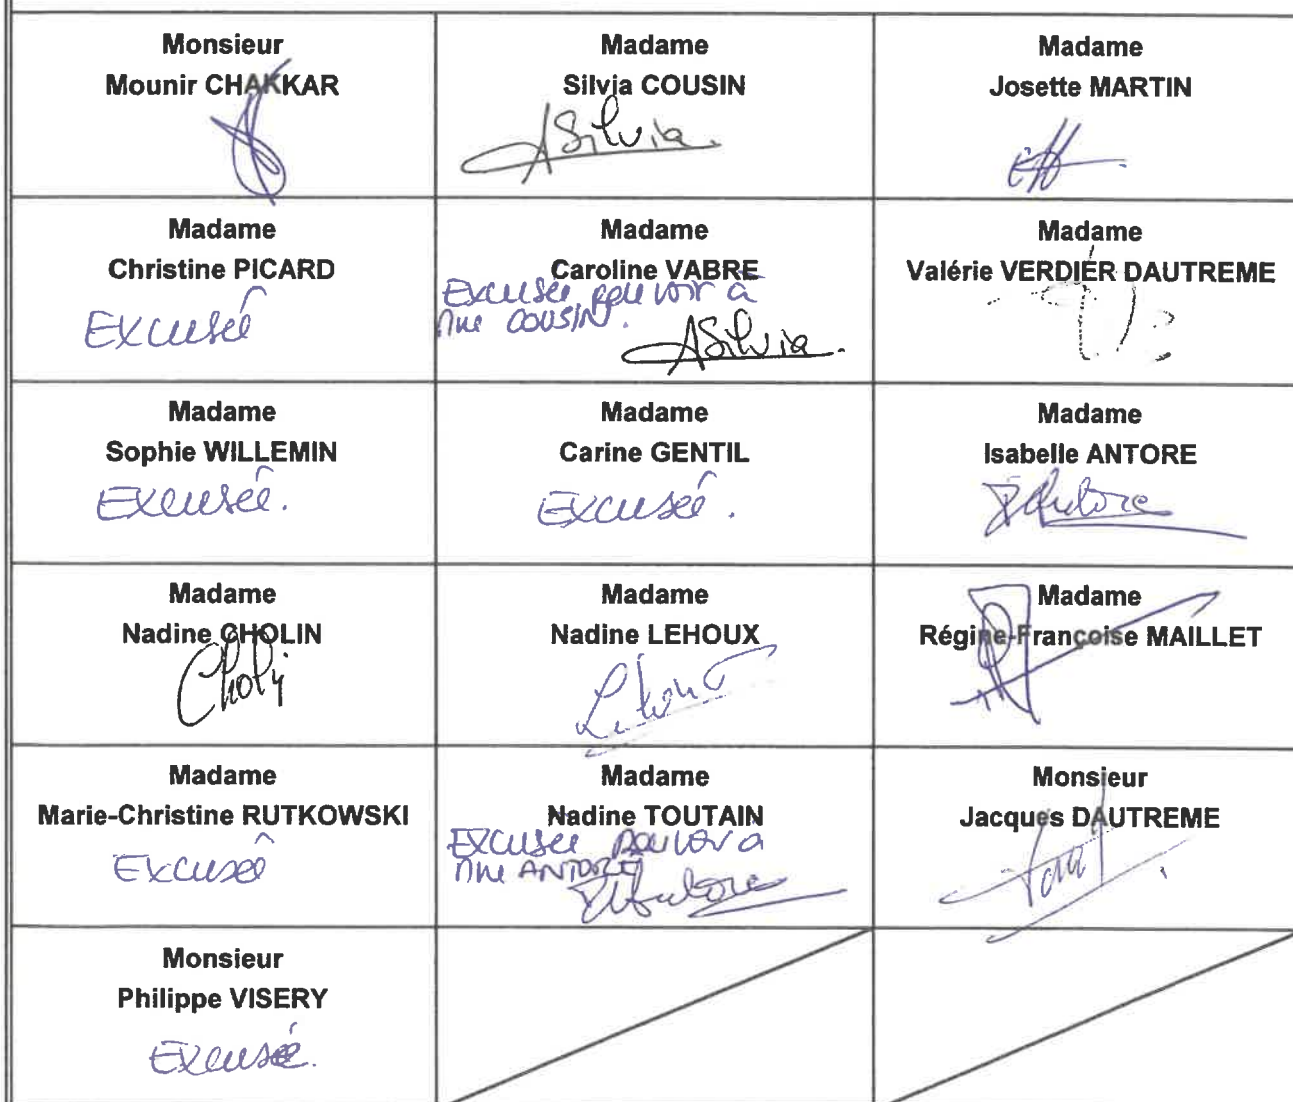 Monsieur
Mounir CHAKKAR
Madame
Silvia COUSIN
Silvia
Madame
Josette MARTIN
Madame
Christine PICARD
Excusée
Madame
Caroline VABRE
Excusée pouvoir à
Mme COUSIN.
Silvia
Madame
Valérie VERDIER DAUTREME
Madame
Sophie WILLEMIN
Excusée.
Madame
Carine GENTIL
Excusée.
Madame
Isabelle ANTORE
Antore
Madame
Nadine CHOLIN
Choli
Madame
Nadine LEHOUX
Lehoux
Madame
Régine-Françoise MAILLET
Madame
Marie-Christine RUTKOWSKI
Excusée
Madame
Nadine TOUTAIN
Excusée pouvoir a
Mme ANTORE
Antore
Monsieur
Jacques DAUTREME
Monsieur
Philippe VISERY
Excusé.